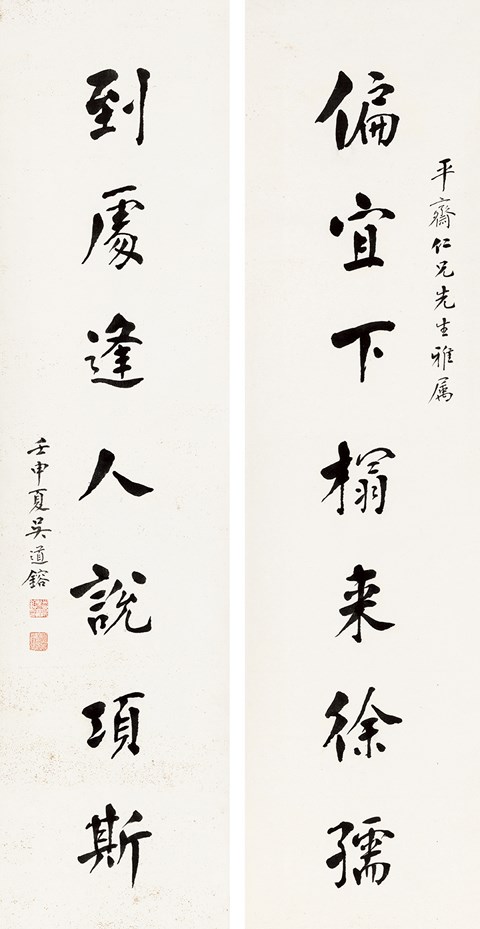 平齋仁兄先生雅属
偏宜下榻来徐孺
到處逢人說項斯
壬申夏吴道鎔